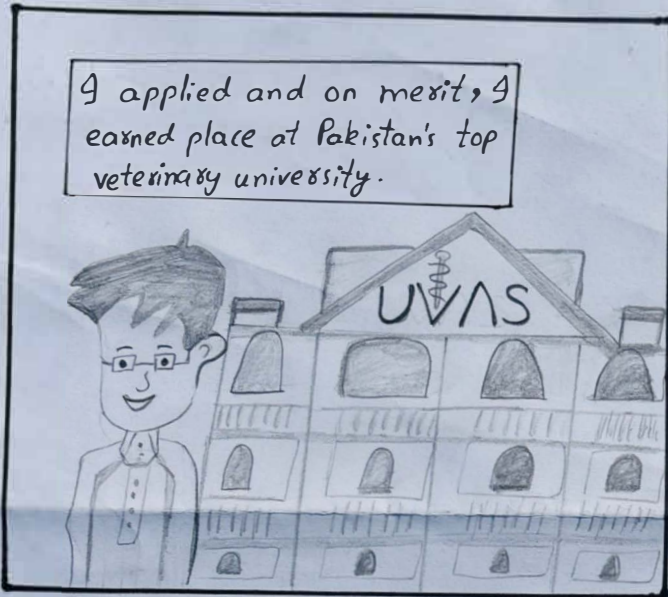 I applied and on merit, I
earned place at Pakistan's top
veterinary university.
UVAS